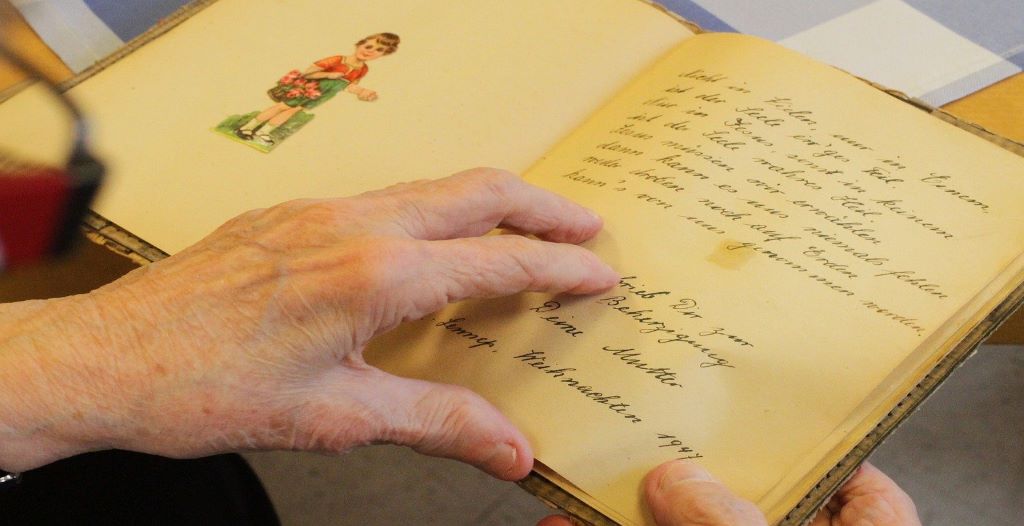 Nicht in Vielen, nur in Einem,
ist der Seele ew'ges Teil.
Nur im Jesus, sonst in keinem
ist der Seele wahres Heil.
Jesus müssen wir erwählen
dann kann es uns niemals fehlen
weder droben noch auf Erden
kann's von uns genommen werden.
schrieb Dir zur
Beherzigung
Deine Mutter
Lennep, Weihnachten 1947